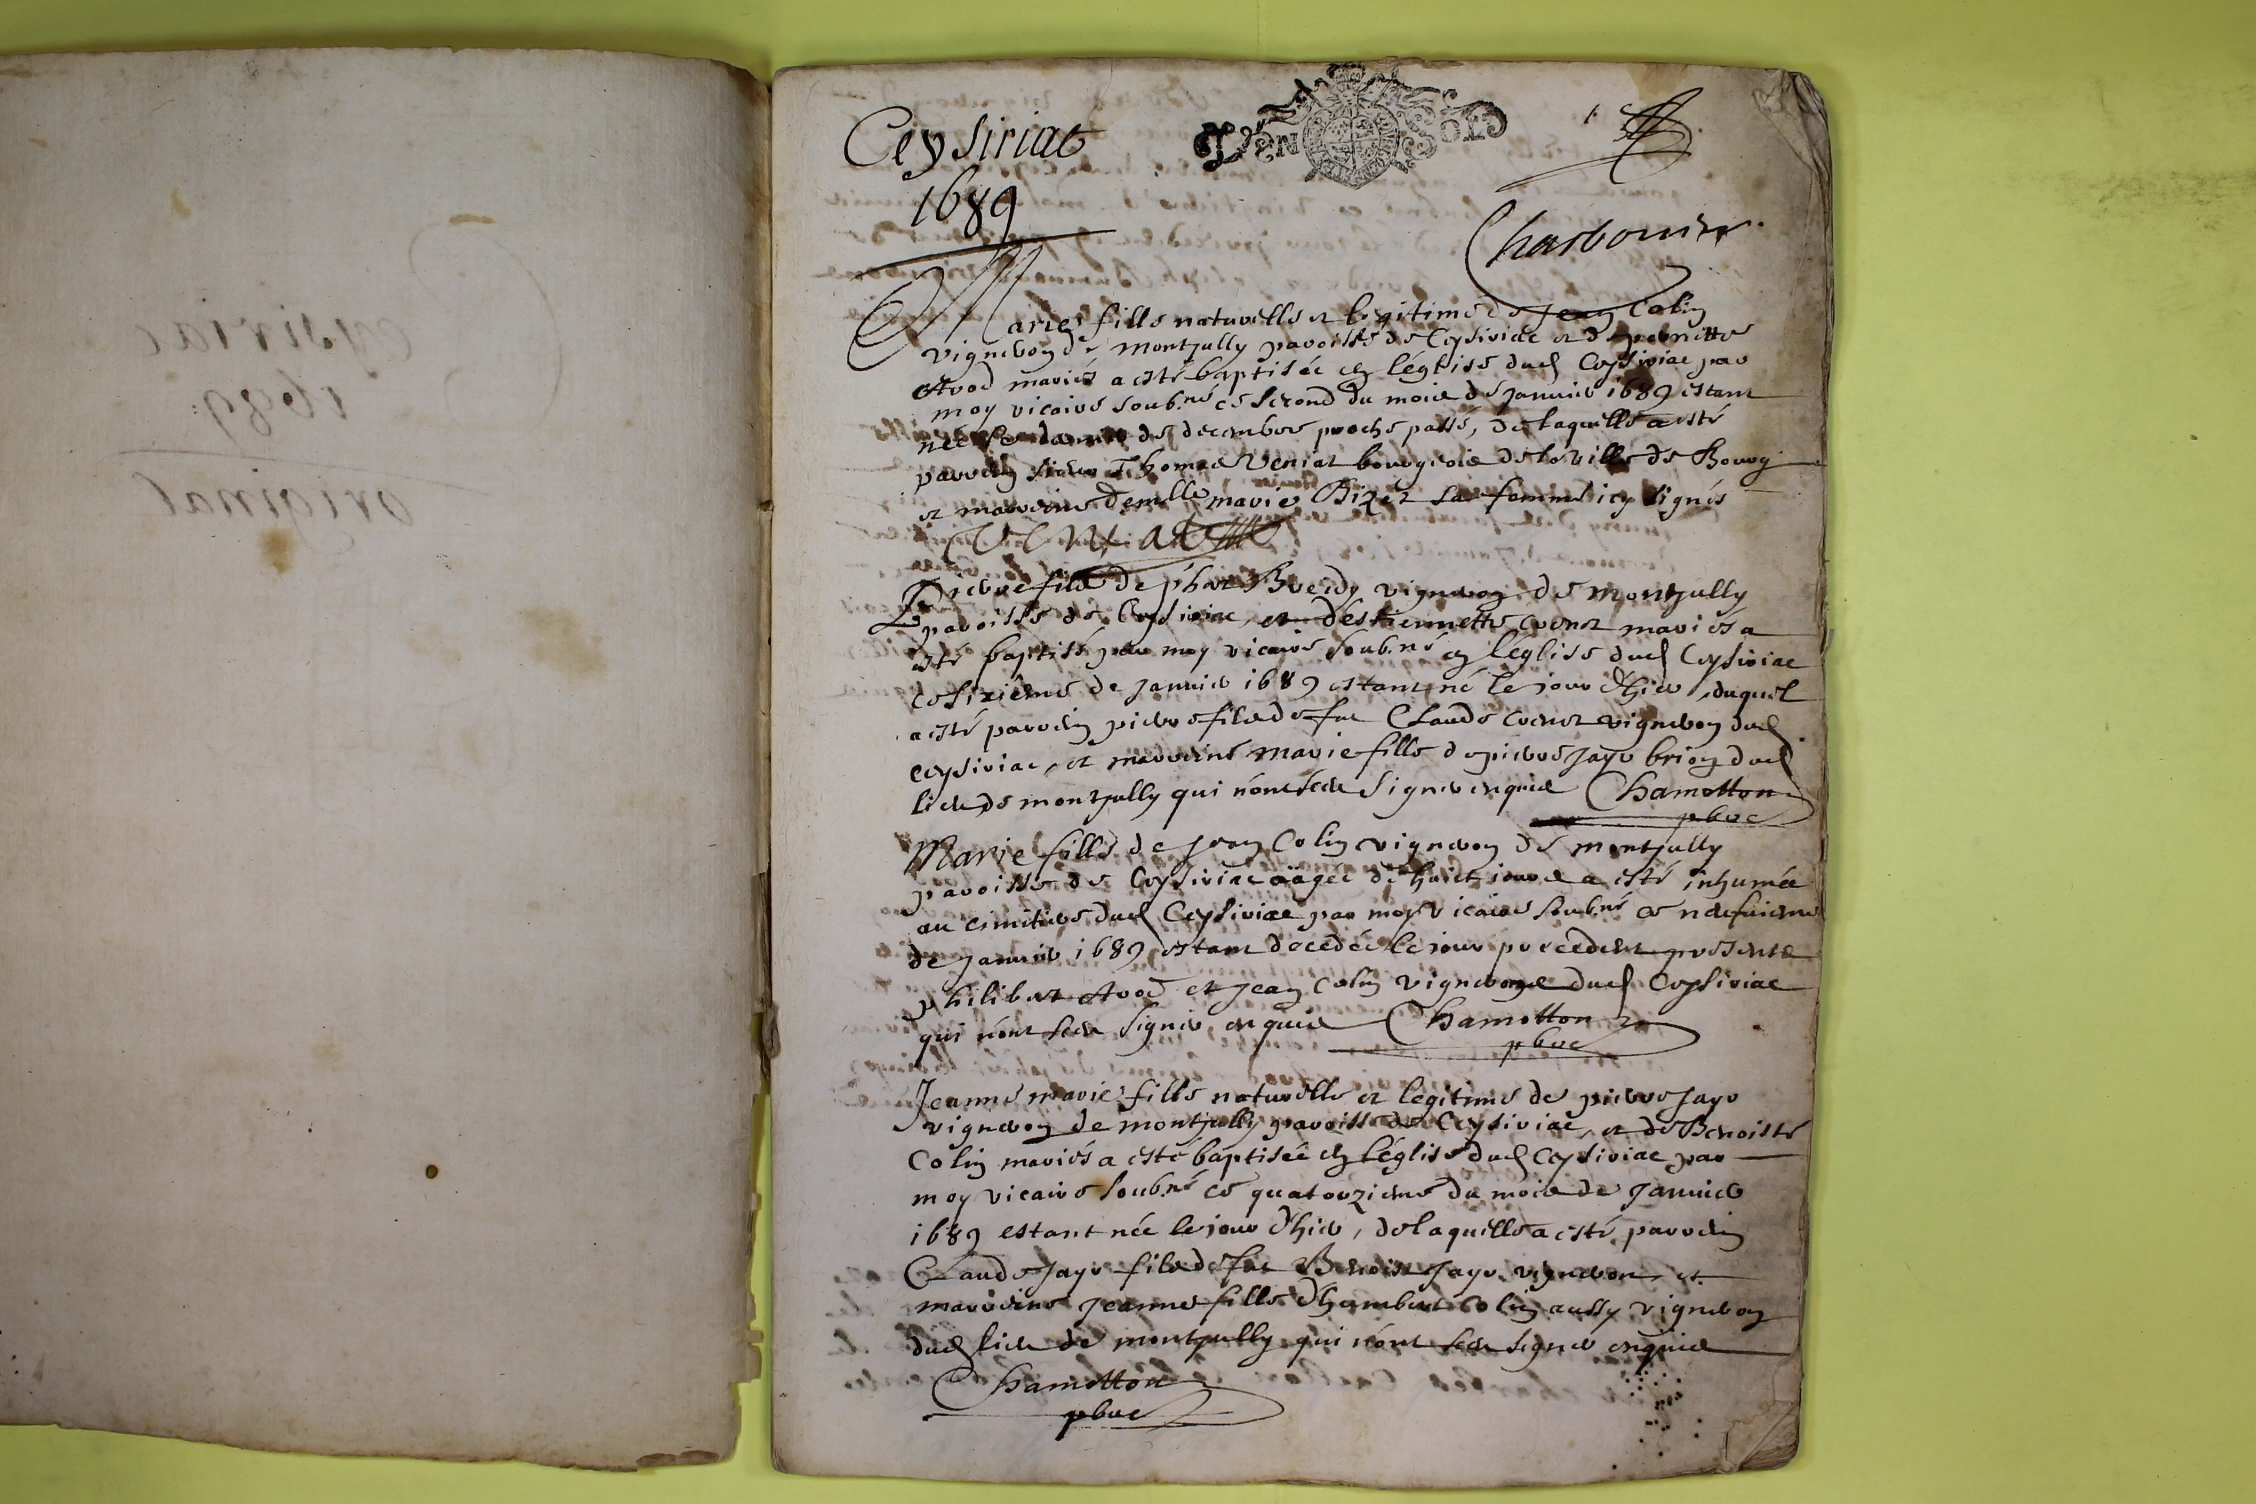 Ceysiriat
1689
original
Ceysiriat
1689
Charbonnier
Marie fille naturelle et legitime de Jean Colin
vigneron de montjully paroisse de Ceysiriac et de perrette
Avod mariés a esté baptisée en léglise dud Ceysiriac par
moy vicaire soub.né ce second du mois de Janvier 1689 estant
née le de decembre proche passé, de laquelle a esté
parrein sieur Thomas Veniat bourgeois de la ville de Bourg
et marreine demlle marie sa femme icy signés
Veniat
Pierre fils de phot vigneron de montjully
paroisse de Ceysiriac, et destiennette mariés a
esté baptisé par moy vicaire soub.né en léglise dud Ceysiriac
ce sixieme de Janvier 1689 estant né le jour d'hier, duquel
a esté parrein pierre fils de feu Claude vigneron dud
ceysiriac, et marreine marie fille de pierre Jayr brion dud
lieu de montjully qui n'ont sceu signer enquis Chamotton
pbre
Marie fille de Jean Colin vigneron de montjully
paroisse de Ceysiriac aagée de huict jours a esté inhumée
au cimitiere dud Ceysiriac par moy vicaire soub.né ce neufvieme
de Janvier 1689 estant decedée le jour precedent presents
philibert Avod et Jean Colin vignerons dud Ceysiriac
qui n'ont sceu signer, enquis Chamotton
pbre
Jeanne marie fille naturelle et legitime de pierre Jayr
vigneron de montjully paroisse de Ceysiriac, et de Benoiste
Colin mariés a esté baptisée en léglise dud Ceysiriac par
moy vicaire soub.né ce quatorzieme du mois de Janvier
1689 estant née le jour d'hier, de laquelle a esté parrein
Claude Jayr fils de feu Benoist Jayr vigneron et
marreine Jeanne fille d'humbert Colin aussy vigneron
dud lieu de montjully qui n'ont sceu signer enquis
Chamotton
pbre